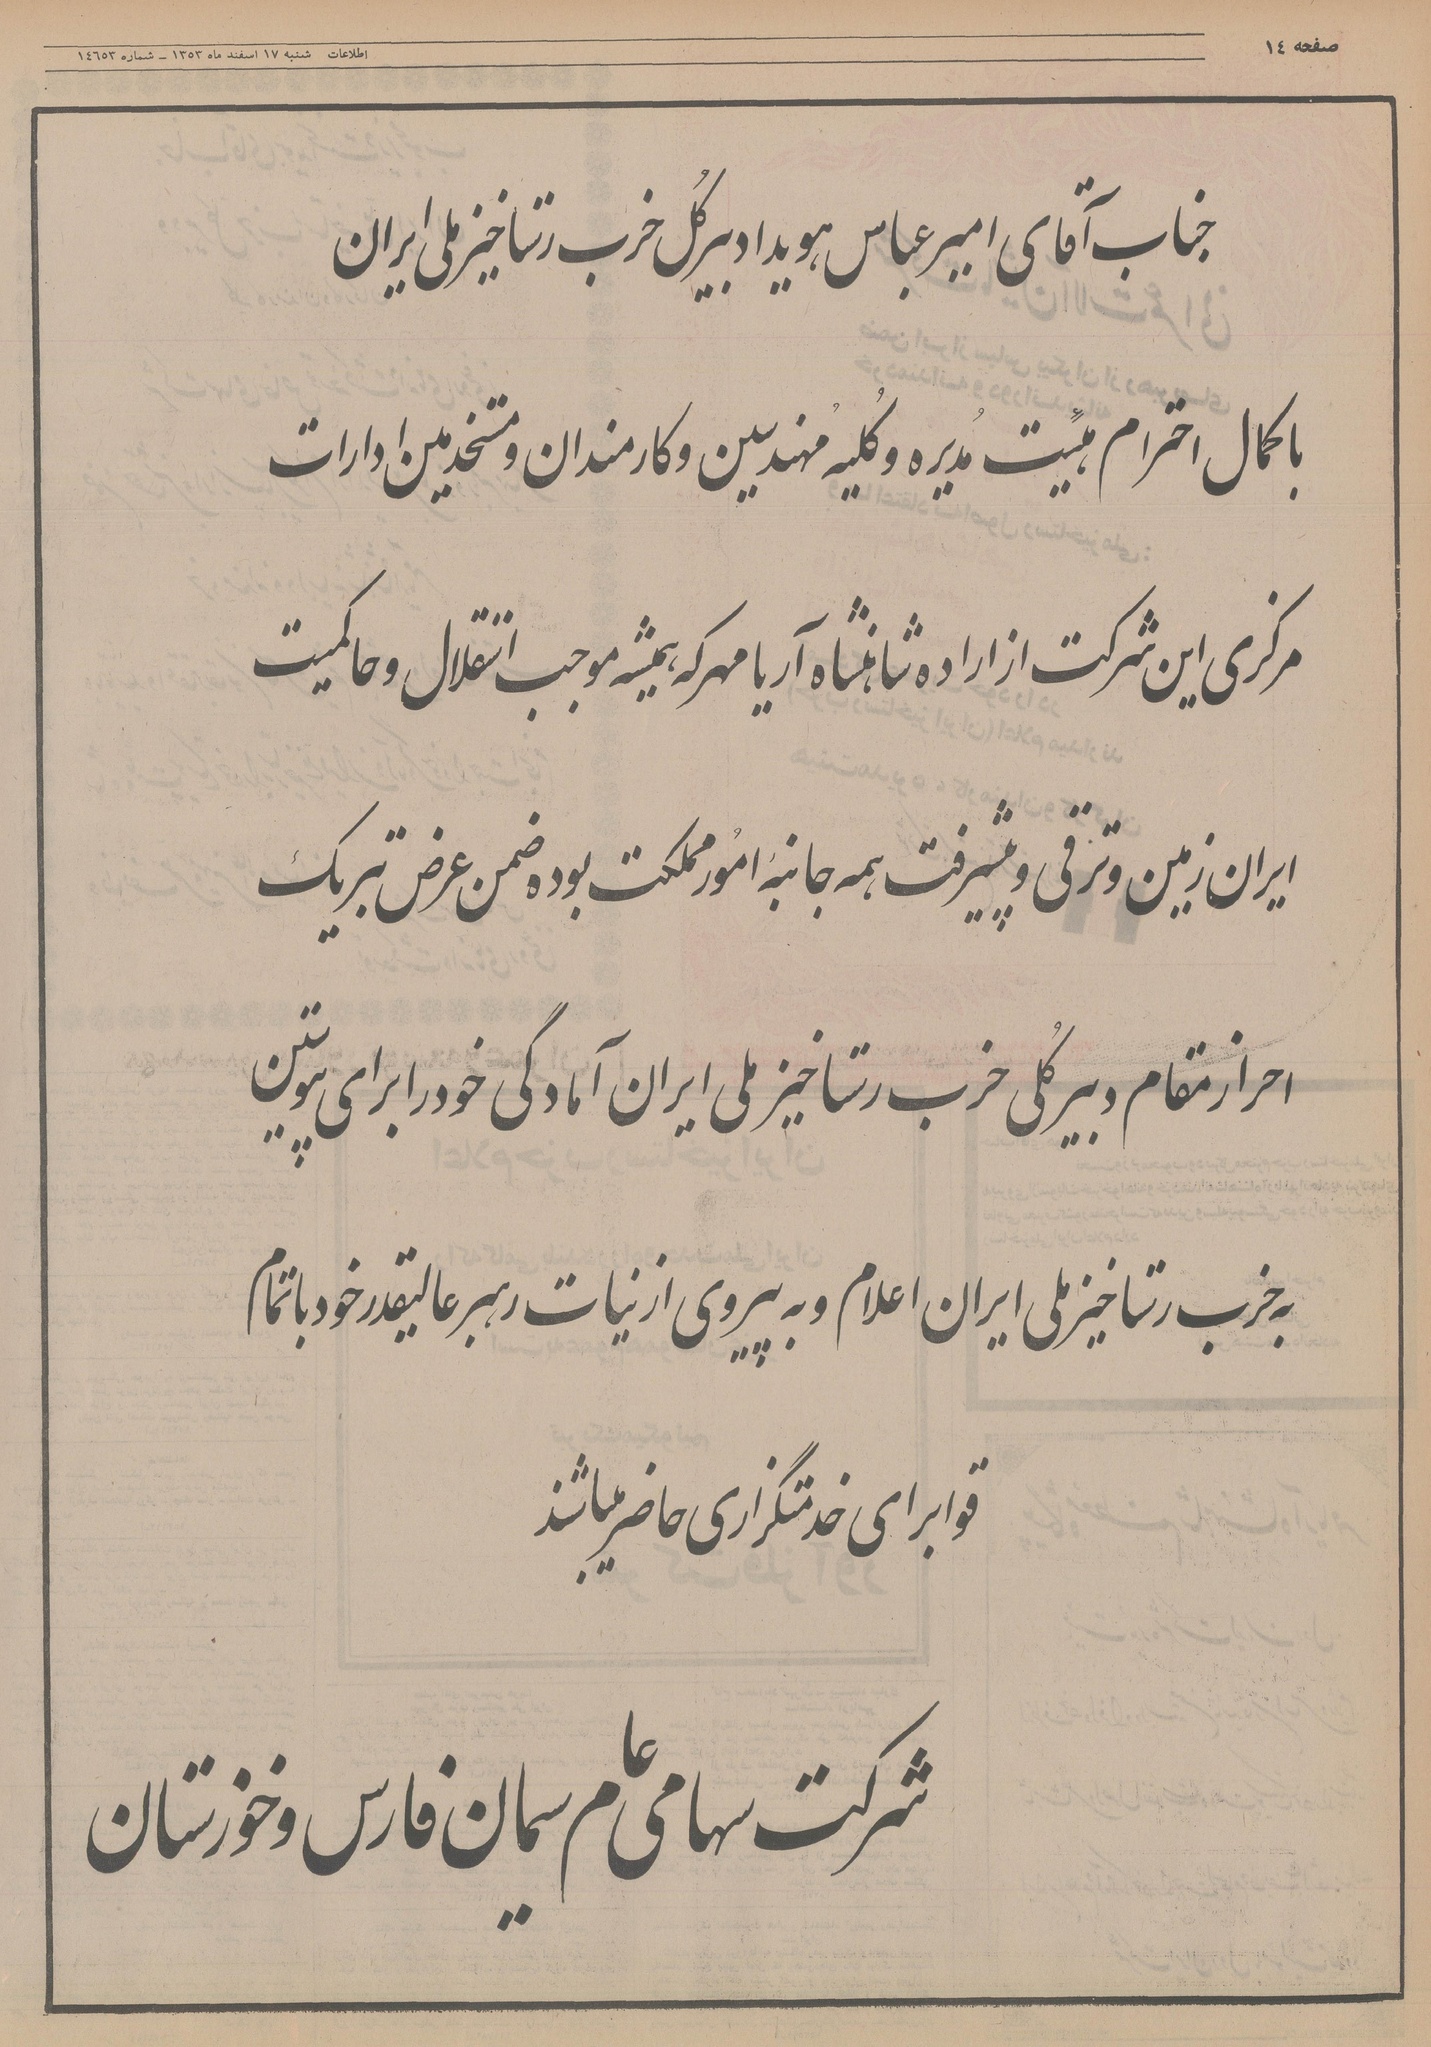 صفحه ١٤
اطلاعات شنبه ١٧ اسفند ماه ١٣٥٣ ـ شماره ١٤٦٥٣
جناب آقای امیر عباس هویدا دبیر کُل حزب رستاخیز ملی ایران
با کمال احترام هیئت مُدیره و کُلیه مُهندسین و کارمندان و مستخدمین ادارات
مرکزی این شرکت از اراده شاهنشاه آریا مهر که همیشه موجب استقلال و حاکمیت
ایران زمین و ترقی و پیشرفت همه جانبهٔ امُور مملکت بوده ضمن عرض تبریک
احراز مقام دبیر کُلی حزب رستاخیز ملی ایران آمادگی خود را برای پیوستن
به حزب رستاخیز ملی ایران اعلام و به پیروی از نیات رهبر عالیقدر خود با تمام
قوا برای خدمتگزاری حاضر میباشند
شرکت سهامی عام سیمان فارس و خوزستان